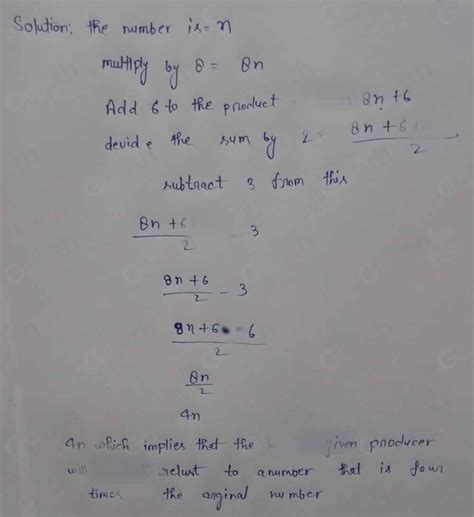 Solution; the number is = n
multiply by 8 = 8n
Add 6 to the product 8n + 6
devide the sum by 2 = 8n + 6 / 2
subtract 3 from this
8n + 6 / 2 3
8n + 6 / 2 - 3
8n + 6 - 6 / 2
8n / 2
4n
4n which implies that the given producer
will relust to a number that is four
times the orginal number